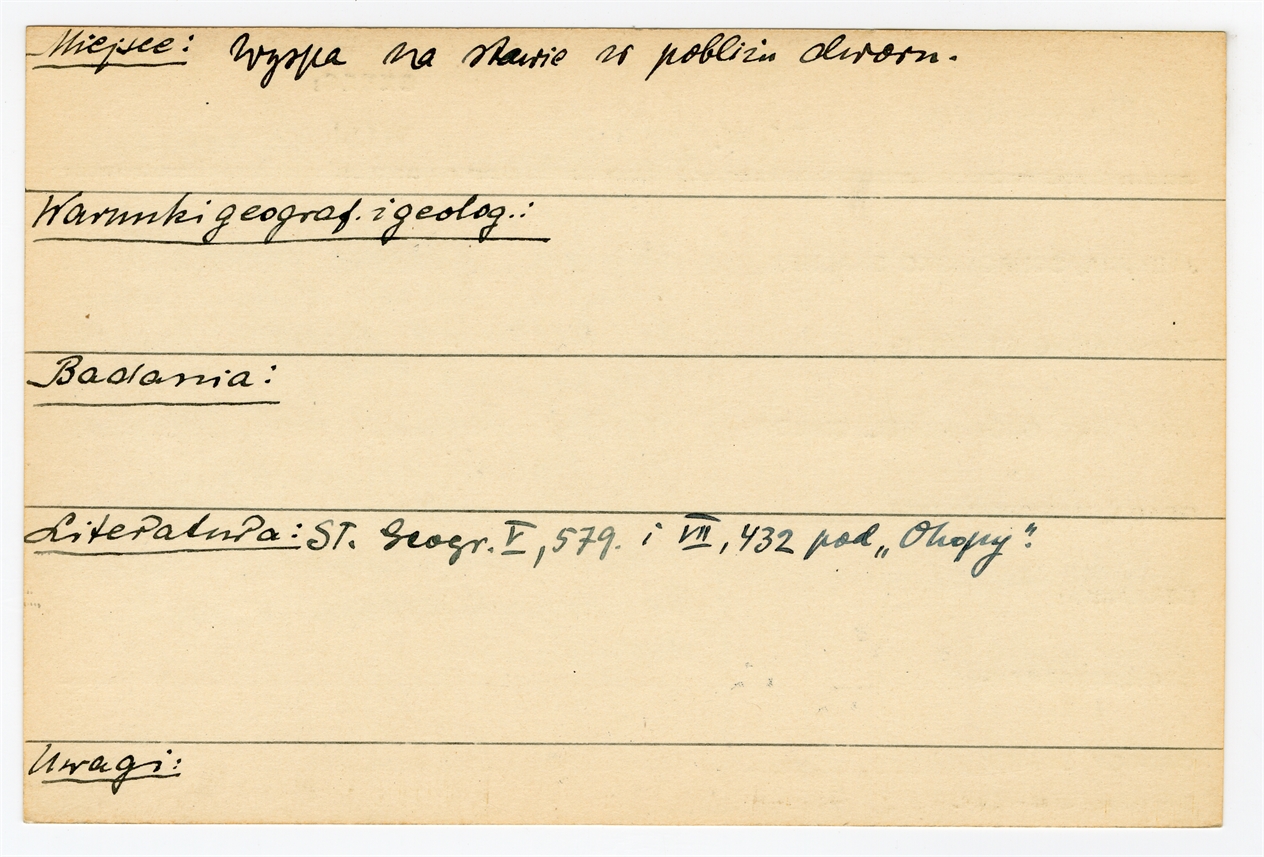 Miejsce: Wyspa na stawie w pobliżu dworu.
Warunki geograf. i geolog.:
Badania:
Literatura: Sł. Geogr. V, 579. i VII, 432 pod „Okopy”.
Uwagi: